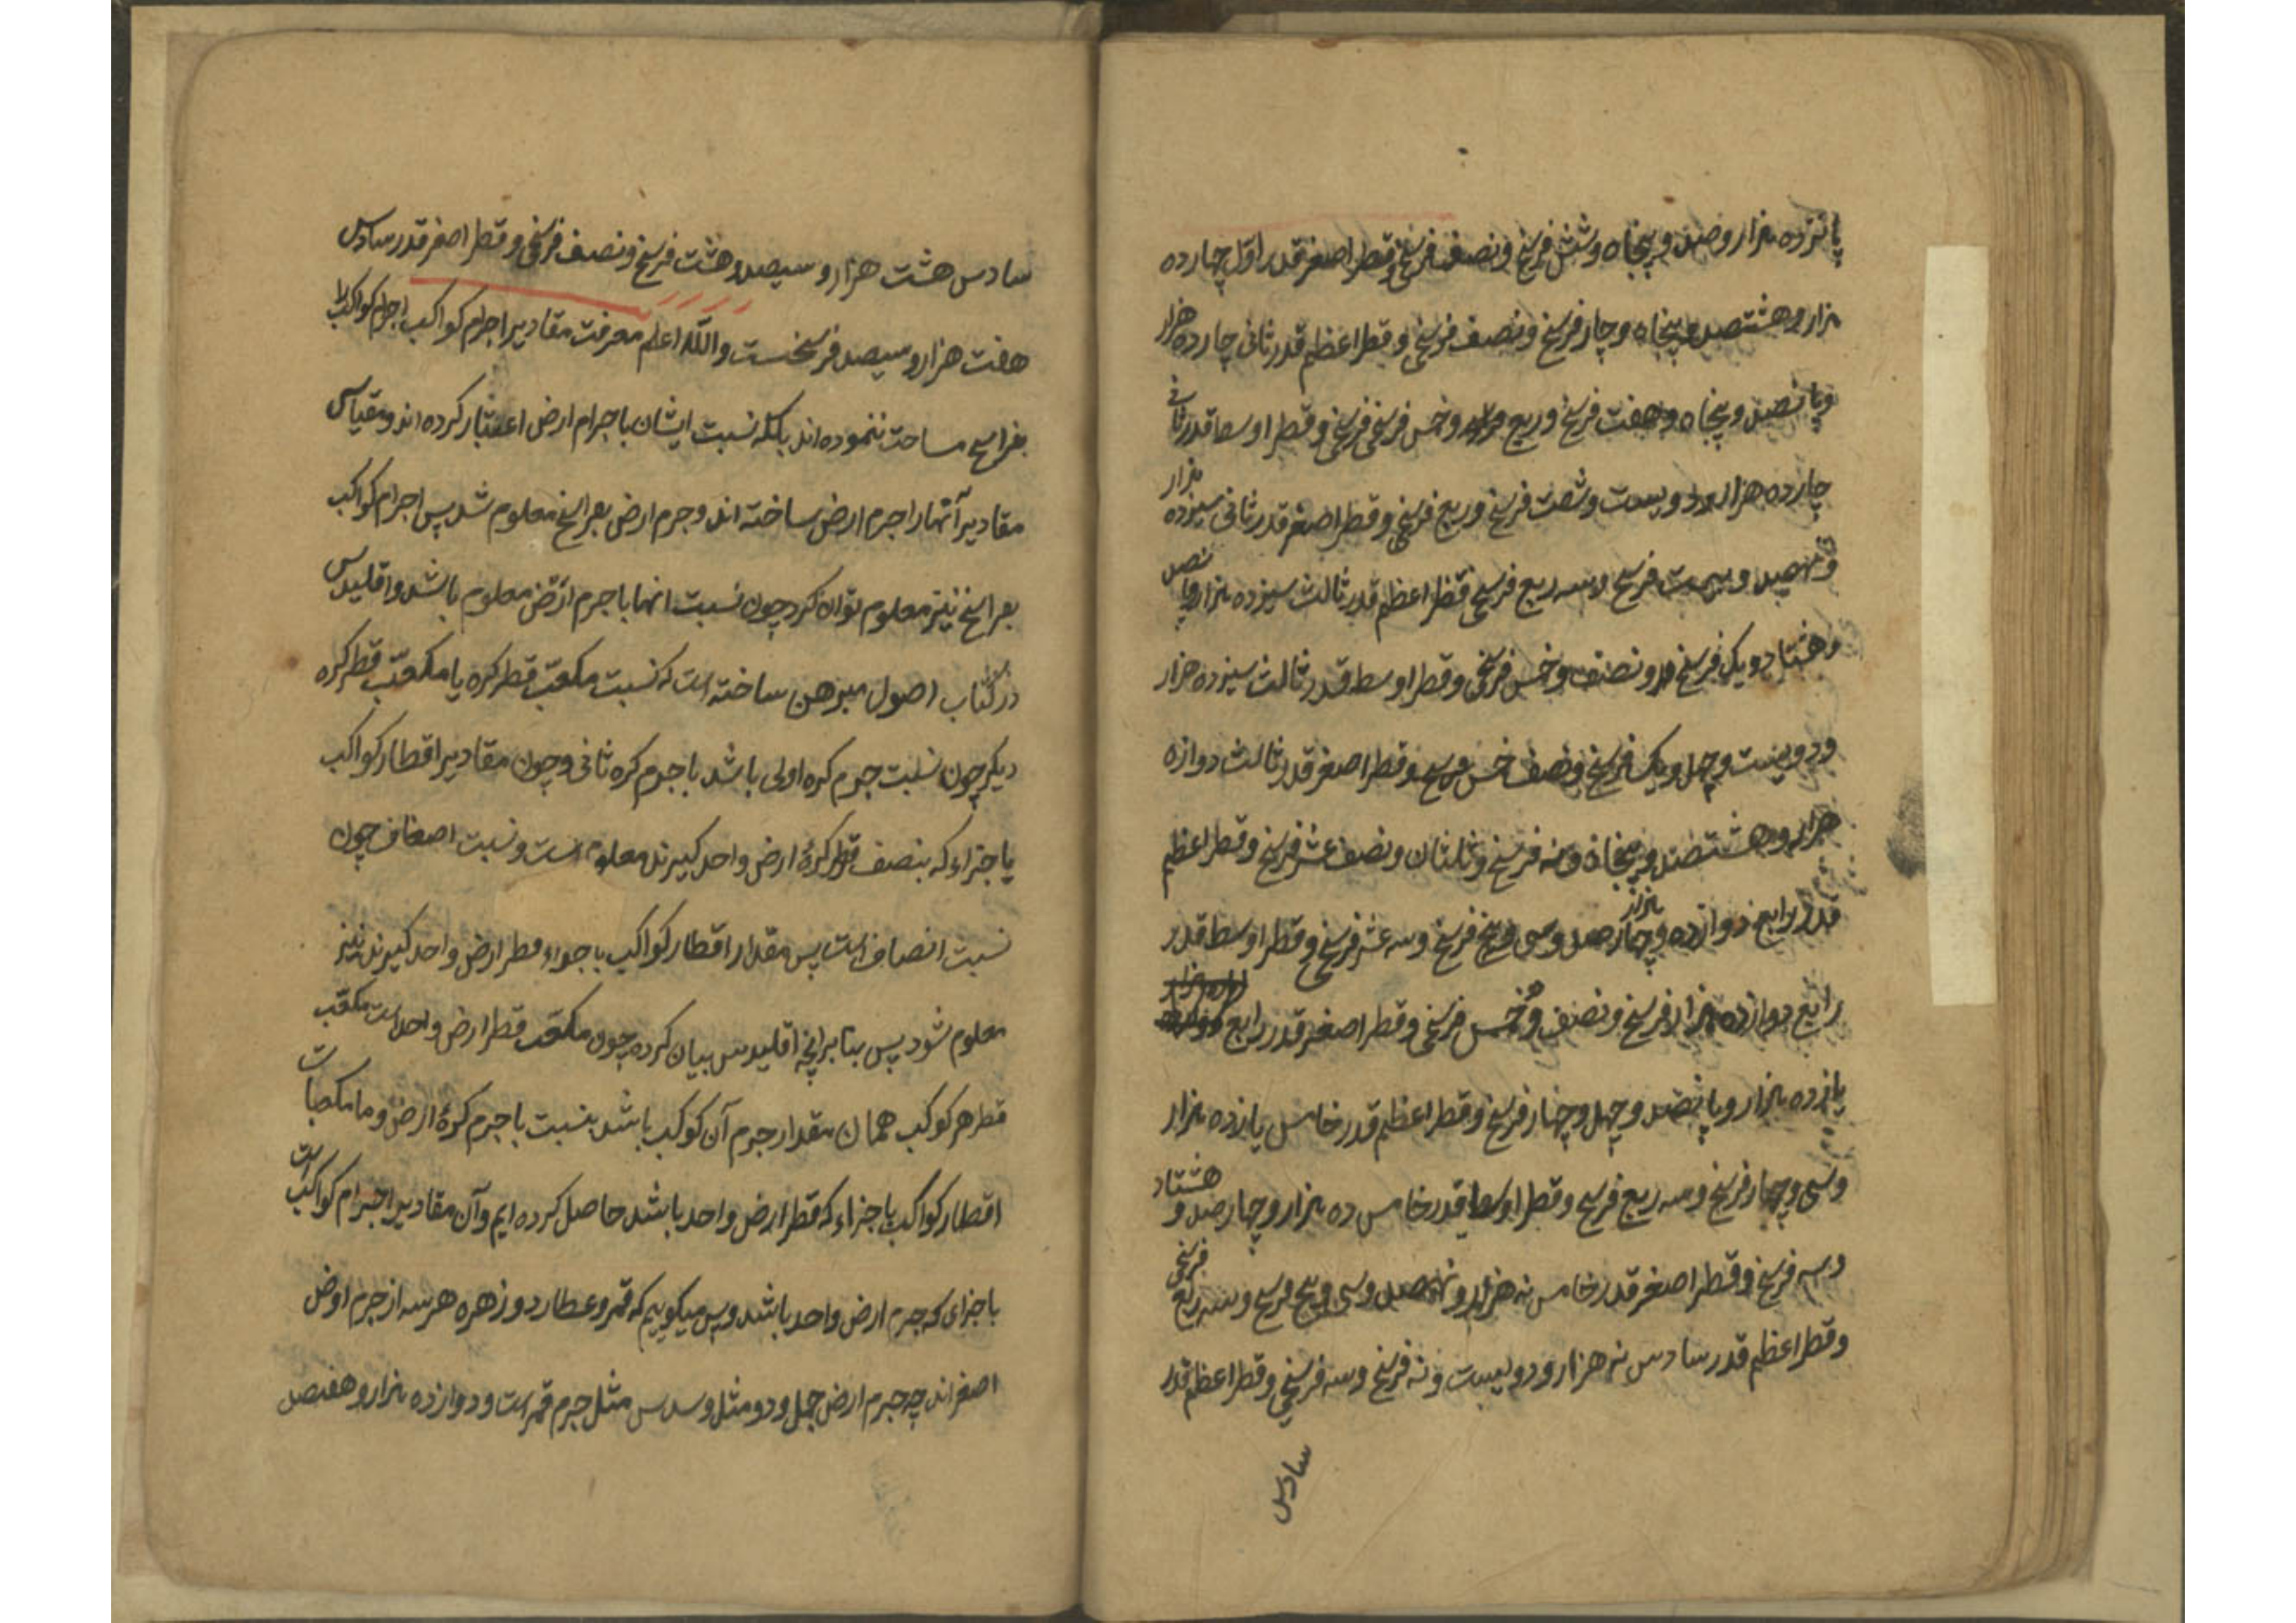 پانزده هزار و صد و پنجاه و شش فرسخ و نصف فرسخی و قطر اصغر قدر اول چهارده
هزار و هشتصد و پنجاه و چار فرسخ و نصف فرسخی و قطر اعظم قدر ثانی چارده هزار
و پانصد و پنجاه و هفت فرسخ و ربع و خمس فرسخی و قطر اوسط قدر ثانی
چارده هزار و دویست و شصت فرسخ و ربع فرسخی و قطر اصغر قدر ثانی سیزده هزار
و نهصد و بیست فرسخ و سه ربع فرسخی قطر اعظم قدر ثالث سیزده هزار و پانصد
و هشتاد و یک فرسخ و نصف و خمس فرسخی و قطر اوسط قدر ثالث سیزده هزار
و دویست و چهل و یک فرسخ و نصف خمس فرسخ و قطر اصغر قدر ثالث دوازه
هزار و هشتصد و پنجاه و نه فرسخ و ثلثان و نصف عشر فرسخ و قطر اعظم
قدر رابع دوازده هزار و چارصد و سی و پنج فرسخ و سه عشر فرسخی و قطر اوسط قدر
رابع دوازده هزار فرسخ و نصف و خمس فرسخی و قطر اصغر قدر رابع
یازده هزار و پانصد و چهل و چهار فرسخ و قطر اعظم قدر خامس یازده هزار
و سی و چهار فرسخ و سه ربع فرسخ و قطر اوسط قدر خامس ده هزار و چهارصد و هشتاد
و سه فرسخ و قطر اصغر قدر خامس نه هزار و نهصد و سی و پنج فرسخ و سه ربع فرسخی
و قطر اعظم قدر سادس نه هزار و دویست و نه فرسخ و سه فرسخی و قطر اعظم قدر
سادس
سادس هشت هزار و سیصد و هشت فرسخ و نصف فرسخی و قطر اصغر قدر سادس
هفت هزار و سیصد فرسخست والله اعلم معرفت مقادیر اجرام کواکب اجرام کواکب را
بفراسخ مساحت ننموده اند بلکه نسبت ایشان باجرام ارض اعتبار کرده اند و مقیاس
مقادیر آنها را جرم ارض ساخته اند و جرم ارض بفراسخ معلوم شد پس اجرام کواکب
بفراسخ نیز معلوم توان کرد چون نسبت انها با جرم ارض معلوم باشد و اقلیدس
در کتاب اصول مبرهن ساخته است که نسبت مکعب قطر کره یا مکعب قطر کره
دیگر چون نسبت جرم کره اولی باشد با جرم کره ثانی و چون مقادیر اقطار کواکب
یا جزاء که بنصف قطر کرۀ ارض واحد گیرند معلوم است و نسبت اضعاف چون
نسبت انصاف است پس مقدار اقطار کواکب باجزاء قطر ارض واحد گیرند نیز
معلوم شود پس بنابرانچه اقلیدس بیان کرده چون مکعب قطر ارض واحد است مکعب
قطر هر کوکب همان مقدار جرم آن کوکب باشد بنسبت با جرم کرۀ ارض و ما مکعبات
اقطار کواکب باجزاء که قطر ارض واحد باشد حاصل کرده ایم و آن مقادیر اجرام کواکب است
باجزای که جرم ارض واحد باشد و پس میکوییم که قمر و عطارد و زهره هر سه از جرم ارض
اصغر اند چه جرم ارض چهل و دو مثل و سدس مثل جرم قمر است و دوازده هزار و هفتصد